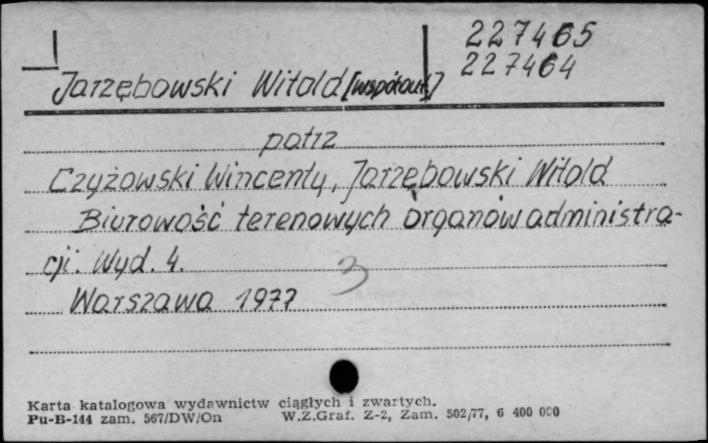 227465
227464
Jarzębowski Witold [współaut.]
patrz
Czyżowski Wincenty, Jarzębowski Witold
Biurowość terenowych organów administra-
cji. Wyd. 4.
3
Warszawa 1977
Karta katalogowa wydawnictw ciągłych i zwartych.
Pu-B-144 zam. 567/DW/On W.Z.Graf. Z-2, Zam. 502/77, 6 400 000